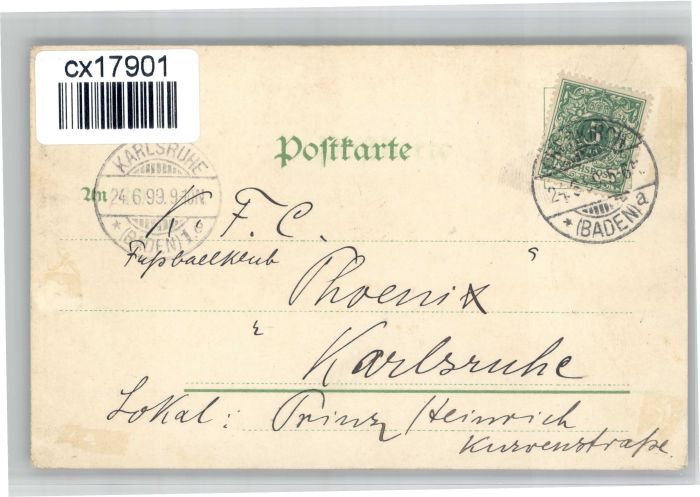 cx17901
Postkarte
KARLSRUHE
24.6.99.9-10N.
* (BADEN) 1.
(BADEN) a
An
K. F. C.
Fußballklub
Phoenix
Karlsruhe
Lokal: Prinz Heinrich
Kurvenstraße